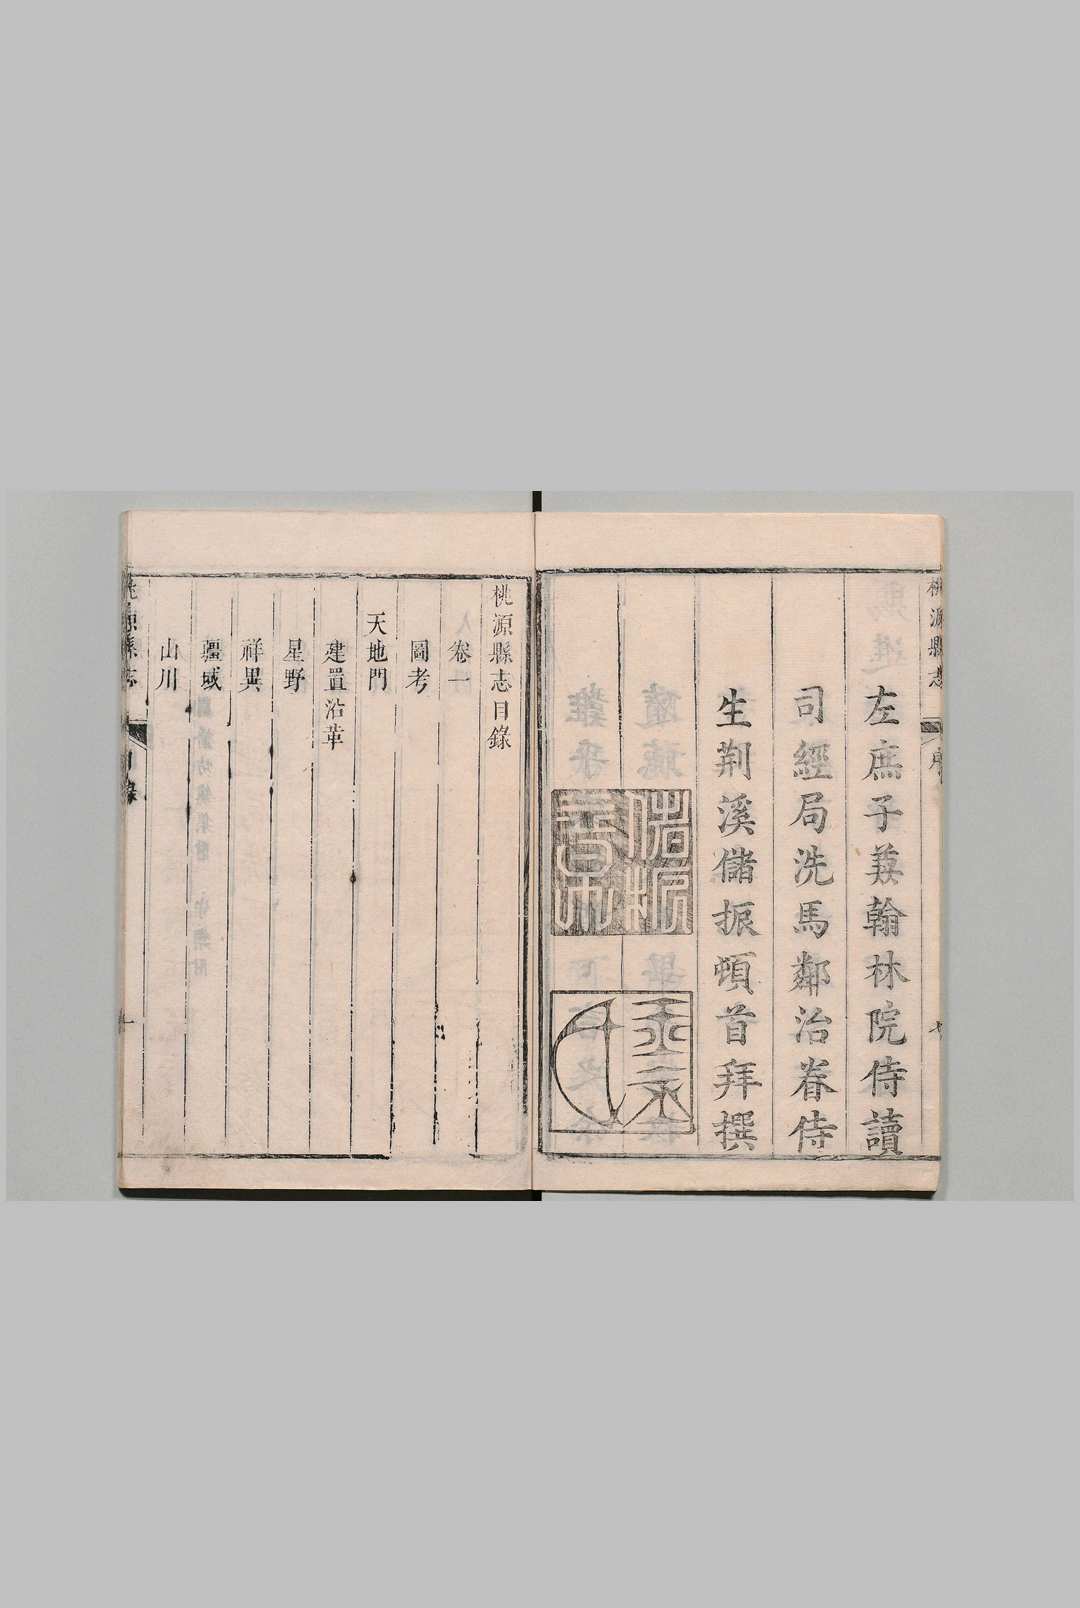 桃源縣志
序
七
左庶子兼翰林院侍讀
司經局洗馬鄰治眷侍
生荆溪儲振頓首拜撰
儲振
桃源縣志目錄
卷一
圖考
天地門
建置沿革
星野
祥異
疆域
山川
桃源縣志
目錄
一